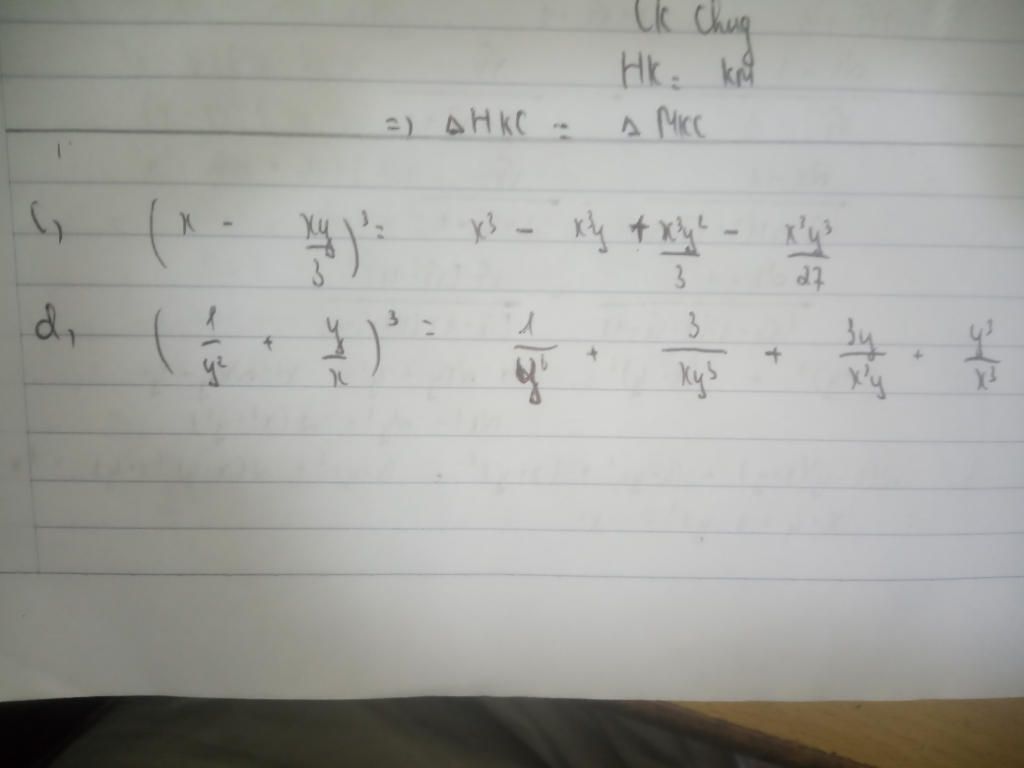 CK chug
HK = KM
=) Δ HKC = Δ MKC
c, (x - xy/3)³ = x³ - x³y + x³y²/3 - x³y³/27
d, (1/y² + y/x)³ = 1/y⁶ + 3/xy³ + 3y/x²y + y³/x³